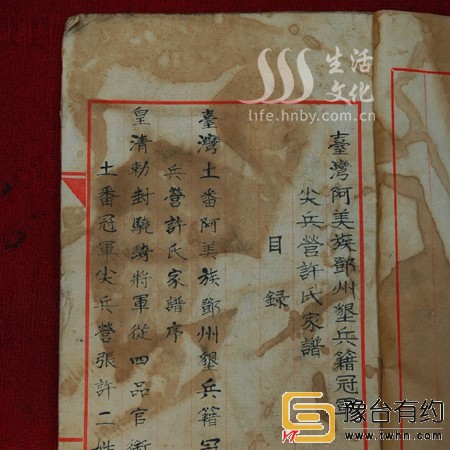 臺灣阿美族鄧州墾兵籍冠軍
尖兵營許氏家譜
目錄
臺灣土番阿美族鄧州墾兵籍冠
兵營許氏家譜序
皇清勑封驍騎將軍從四品官銜
土番冠軍尖兵營張許二姓
生活
文化
life.hnby.com.cn
豫台有约
www.twhn.com